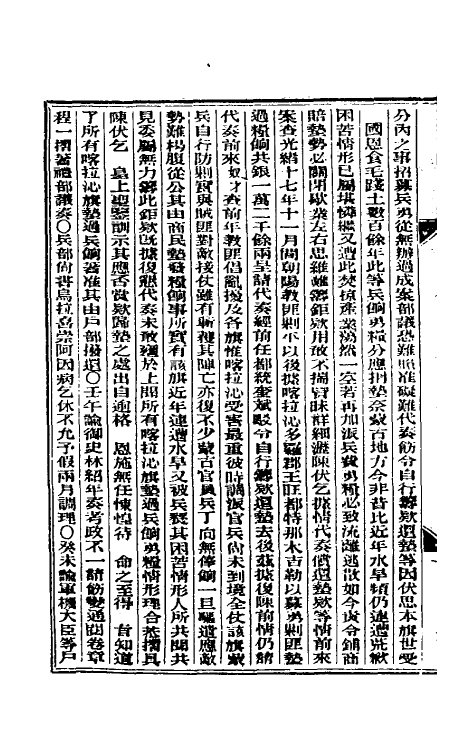 分內之事招募兵勇從無辦過成案部議恐難照准礙難代奏飭令自行籌歘遣墊等因伏思本旗世受
國恩食毛踐土數百餘年此等兵餉勇糧分應捐墊奈蒙古地方今非昔比近年水旱頻仍連遭荒歉
困苦情形已屬堪憐繼又遭此焚掠產業蕩然一空若再加派兵費勇糧必致流離逃散如今責令鋪商
賠墊勢必關閉歇業左右思維難籌鉅歘用敢不揣冒昧詳細瀝陳伏乞據情代奏償還墊歘等情前來
案查光緒十七年十一月間朝陽教匪剿平以後據喀拉沁多羅郡王旺都特那木吉勒以募勇剿匪墊
過糧餉共銀一萬二千餘兩呈請代奏經前任都統奎斌駁令自行籌歘遣墊去後茲據復陳前情仍請
代奏前來奴才查前年教匪倡亂擾及各旗惟喀拉沁受害最重彼時調派官兵尚未到境全仗該旗蒙
兵自行防剿實與賊匪對敵接仗雖有斬獲其陣亡亦復不少蒙古官員兵丁向無俸餉一旦驅遣應敵
勢難枵腹從公其由商民墊發糧餉事所實有該旗近年連遭水旱又被兵燹其困苦情形人所共聞共
見委屬無力籌此鉅歘既據復懇代奏未敢壅於上聞所有喀拉沁旗墊過兵餉勇糧情形理合恭摺具
陳伏乞　皇上聖鑒訓示其應否賞歘歸墊之處出自逾格　恩施無任悚惶待　命之至得　旨知道
了所有喀拉沁旗墊過兵餉著准其由戶部撥還〇壬午諭御史林紹年奏考政不一請飭變通闈卷章
程一摺著禮部議奏〇兵部尚書烏拉喜崇阿因病乞休不允予假兩月調理〇癸未諭軍機大臣等戶